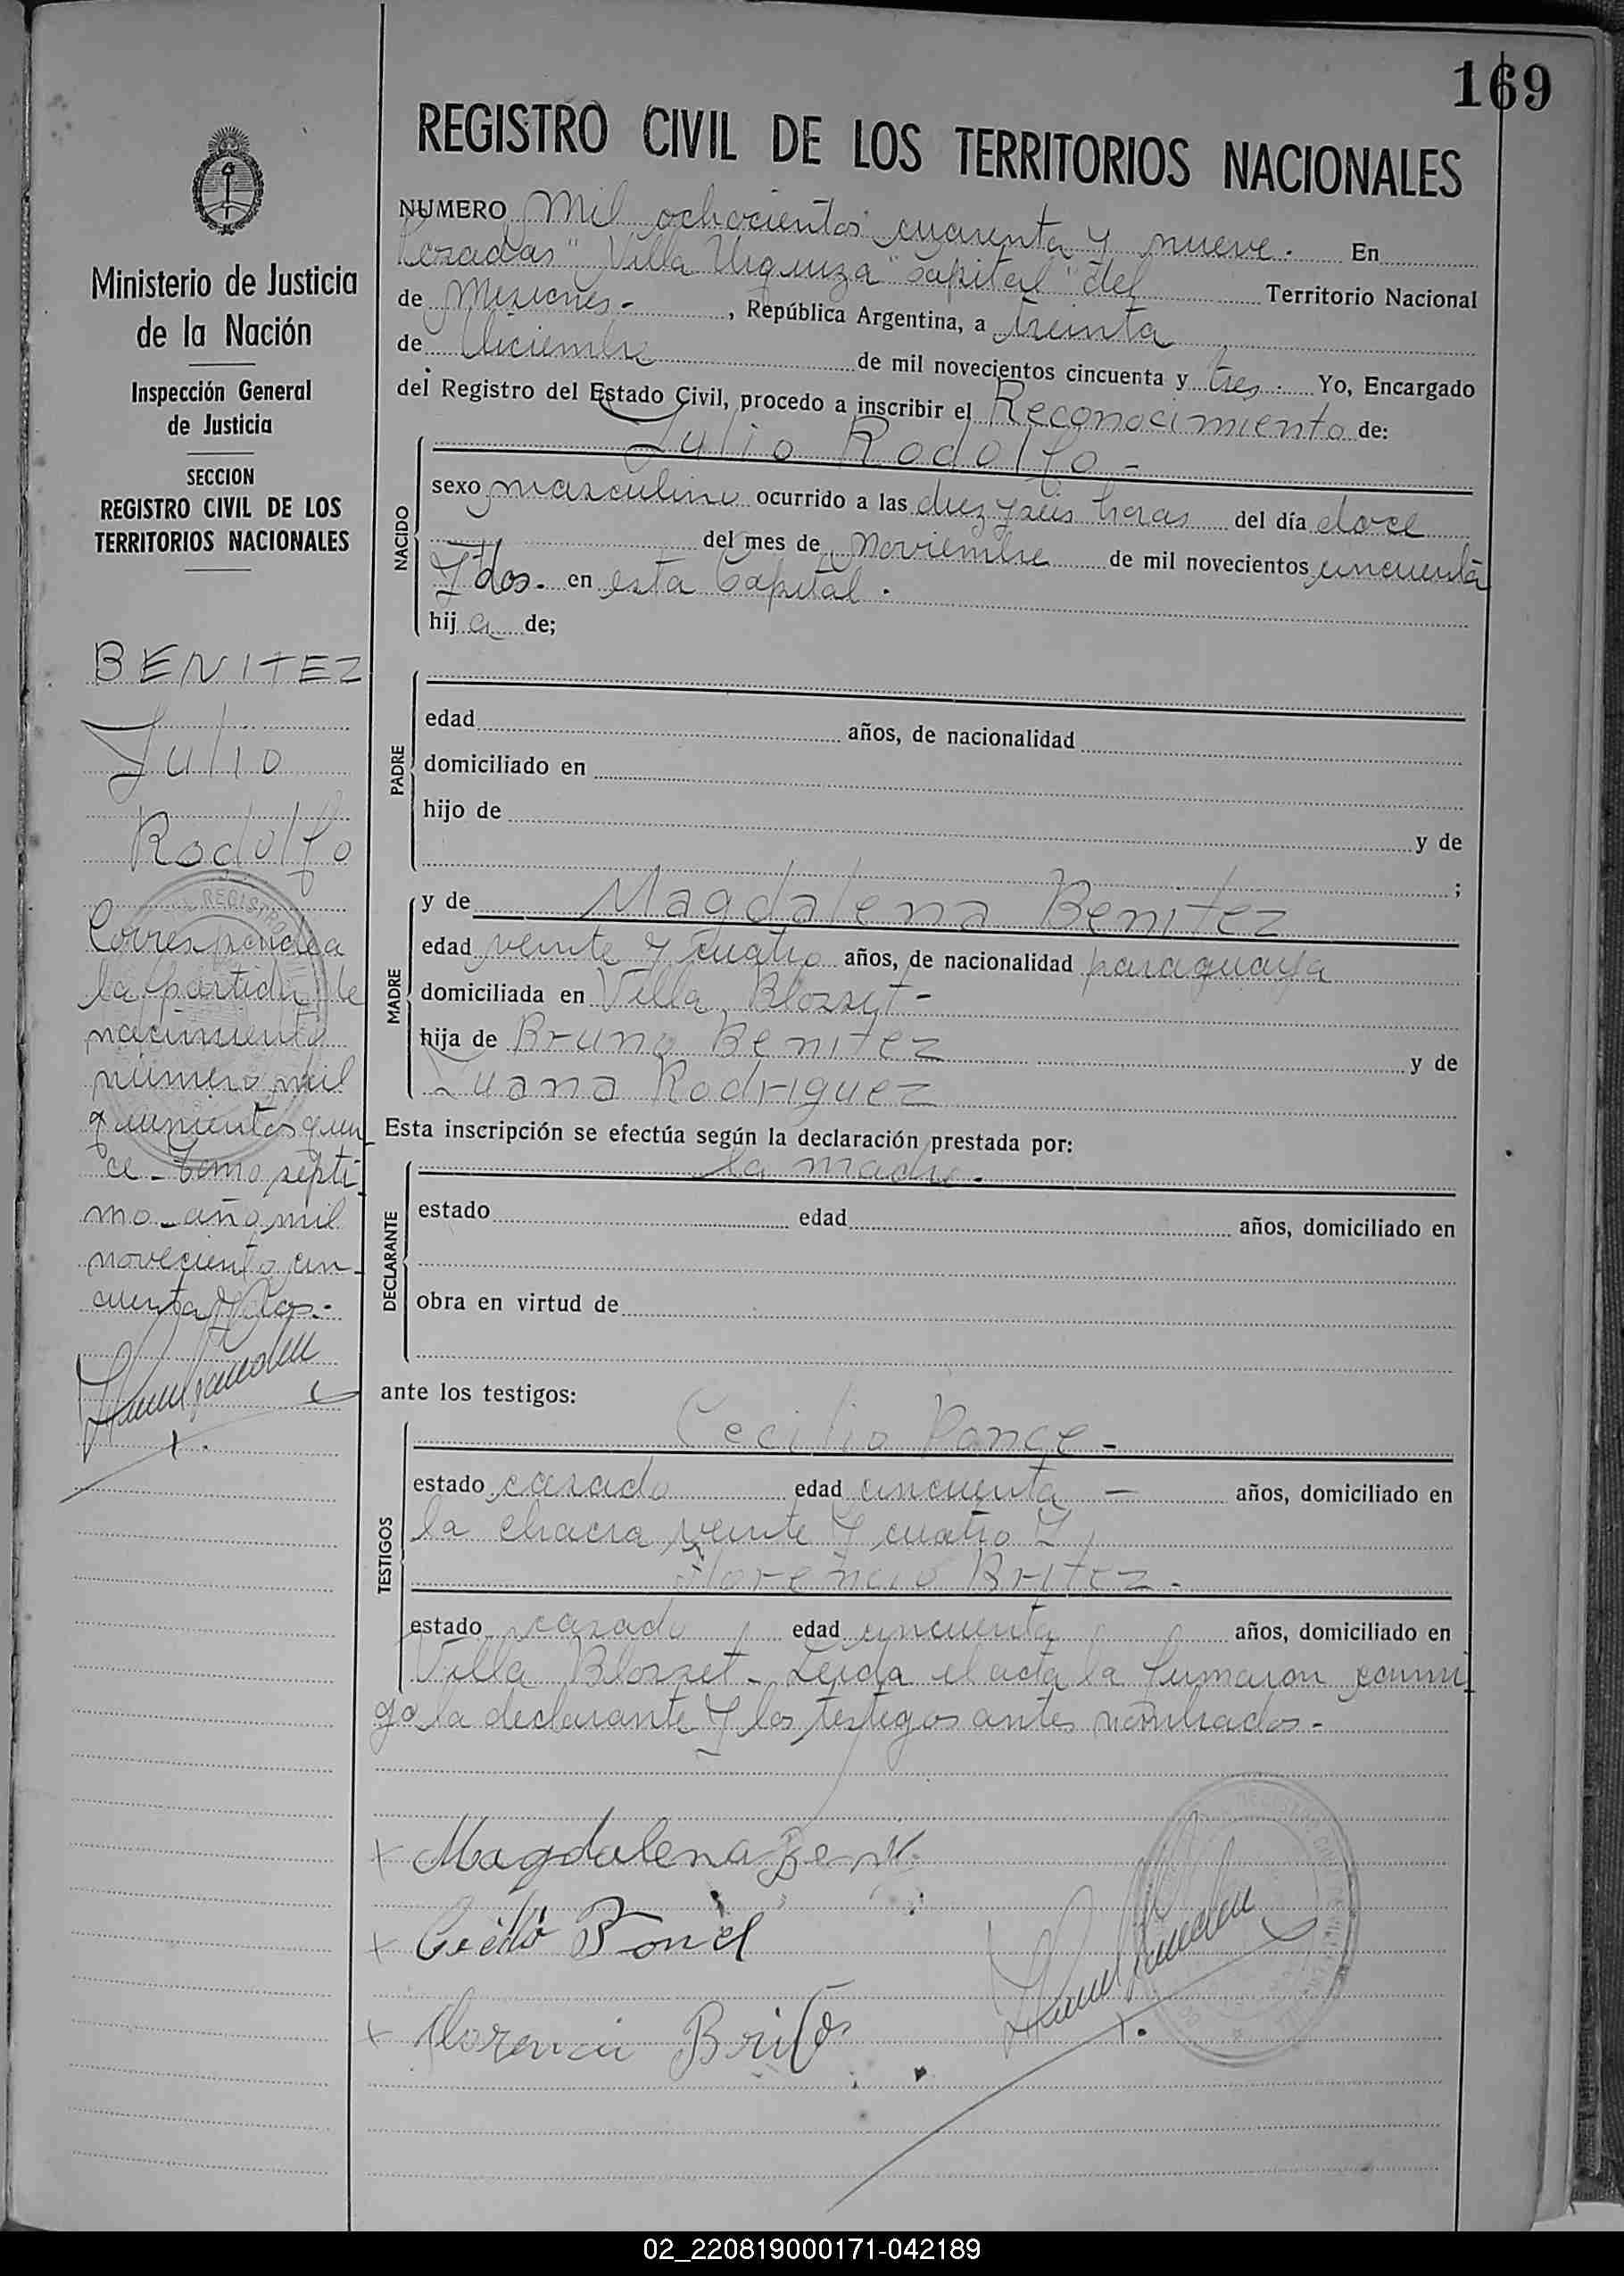 169
REGISTRO CIVIL DE LOS TERRITORIOS NACIONALES
Ministerio de Justicia
de la Nación
Inspección General
de Justicia
SECCION
REGISTRO CIVIL DE LOS
TERRITORIOS NACIONALES
BENITEZ
Julio
Rodolfo
Corresponde a
la partida de
nacimiento
número mil
quinientos quin
ce - tomo sépti-
mo - año mil
noveciento cin-
cuenta y dos.-
NUMERO mil ochocientos cuarenta y nueve. En
Posadas "Villa Urquiza" capital del Territorio Nacional
de Misiones - , República Argentina, a treinta
de Diciembre de mil novecientos cincuenta y tres. Yo, Encargado
del Registro del Estado Civil, procedo a inscribir el Reconocimiento de:
Julio Rodolfo -
NACIDO
sexo masculino ocurrido a las diez y seis horas del día doce
del mes de noviembre de mil novecientos cincuenta
y dos. en esta Capital.
hij a de;
PADRE
edad años, de nacionalidad
domiciliado en
hijo de y de
;
MADRE
y de Magdalena Benitez
edad veinte y cuatro años, de nacionalidad paraguaya
domiciliada en Villa Blosset -
hija de Bruno Benitez y de
Juana Rodriguez
Esta inscripción se efectúa según la declaración prestada por:
la madre.
DECLARANTE
estado edad años, domiciliado en
obra en virtud de
ante los testigos:
Cecilio Ponce -
TESTIGOS
estado casado edad cincuenta — años, domiciliado en
la chacra veinte y cuatro y
Florencio Britez -
estado casado edad cincuenta años, domiciliado en
Villa Blosset - Leída el acta la firmaron conmi-
go la declarante y los testigos antes nombrados.-
x Magdalena Benit
x Ponce
x Florencio Britos
02_220819000171-042189